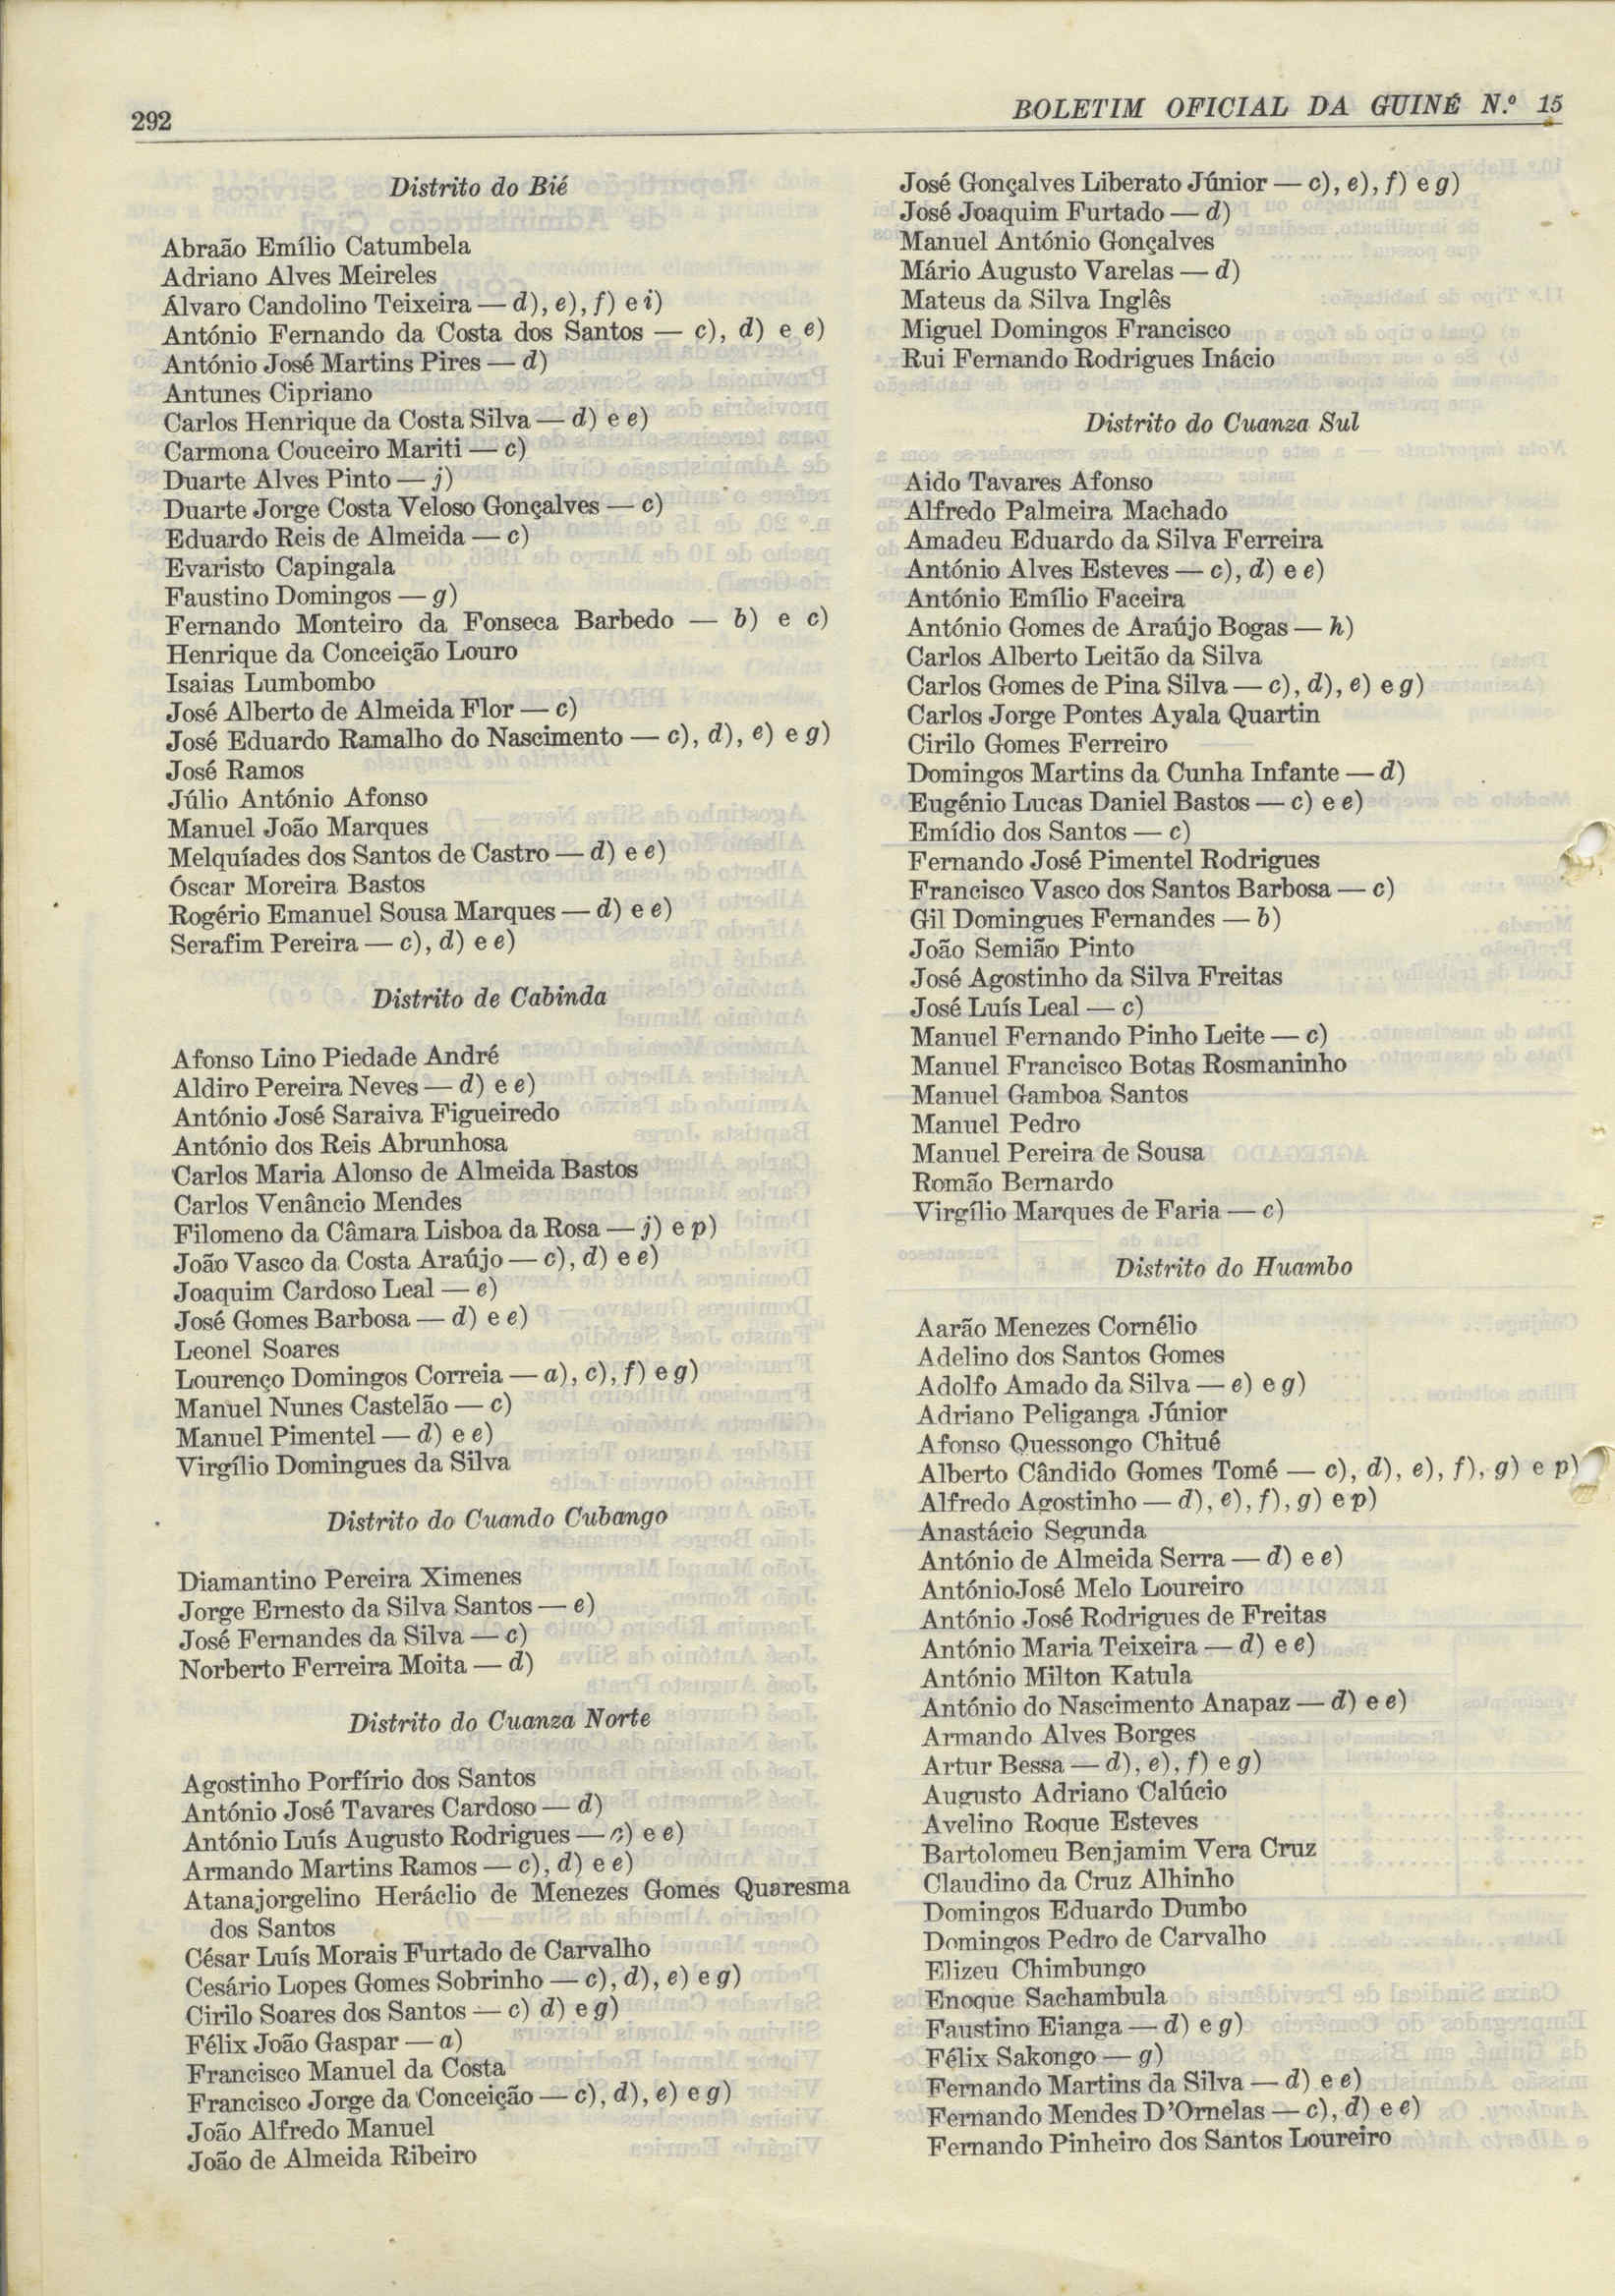 292
BOLETIM OFICIAL DA GUINÉ N.º 15
Distrito do Bié
Abraão Emílio Catumbela
Adriano Alves Meireles
Álvaro Candolino Teixeira — d), e), f) e i)
António Fernando da Costa dos Santos — c), d) e e)
António José Martins Pires — d)
Antunes Cipriano
Carlos Henrique da Costa Silva — d) e e)
Carmona Couceiro Mariti — c)
Duarte Alves Pinto — j)
Duarte Jorge Costa Veloso Gonçalves — c)
Eduardo Reis de Almeida — c)
Evaristo Capingala
Faustino Domingos — g)
Fernando Monteiro da Fonseca Barbedo — b) e c)
Henrique da Conceição Louro
Isaias Lumbombo
José Alberto de Almeida Flor — c)
José Eduardo Ramalho do Nascimento — c), d), e) e g)
José Ramos
Júlio António Afonso
Manuel João Marques
Melquíades dos Santos de Castro — d) e e)
Óscar Moreira Bastos
Rogério Emanuel Sousa Marques — d) e e)
Serafim Pereira — c), d) e e)
Distrito de Cabinda
Afonso Lino Piedade André
Aldiro Pereira Neves — d) e e)
António José Saraiva Figueiredo
António dos Reis Abrunhosa
Carlos Maria Alonso de Almeida Bastos
Carlos Venâncio Mendes
Filomeno da Câmara Lisboa da Rosa — j) e p)
João Vasco da Costa Araújo — c), d) e e)
Joaquim Cardoso Leal — e)
José Gomes Barbosa — d) e e)
Leonel Soares
Lourenço Domingos Correia — a), c), f) e g)
Manuel Nunes Castelão — c)
Manuel Pimentel — d) e e)
Virgílio Domingues da Silva
Distrito do Cuando Cubango
Diamantino Pereira Ximenes
Jorge Ernesto da Silva Santos — e)
José Fernandes da Silva — c)
Norberto Ferreira Moita — d)
Distrito do Cuanza Norte
Agostinho Porfírio dos Santos
António José Tavares Cardoso — d)
António Luís Augusto Rodrigues — c) e e)
Armando Martins Ramos — c), d) e e)
Atanajorgelino Heráclio de Menezes Gomes Quaresma
dos Santos
César Luís Morais Furtado de Carvalho
Cesário Lopes Gomes Sobrinho — c), d), e) e g)
Cirilo Soares dos Santos — c) d) e g)
Félix João Gaspar — a)
Francisco Manuel da Costa
Francisco Jorge da Conceição — c), d), e) e g)
João Alfredo Manuel
João de Almeida Ribeiro
José Gonçalves Liberato Júnior — c), e), f) e g)
José Joaquim Furtado — d)
Manuel António Gonçalves
Mário Augusto Varelas — d)
Mateus da Silva Inglês
Miguel Domingos Francisco
Rui Fernando Rodrigues Inácio
Distrito do Cuanza Sul
Aido Tavares Afonso
Alfredo Palmeira Machado
Amadeu Eduardo da Silva Ferreira
António Alves Esteves — c), d) e e)
António Emílio Faceira
António Gomes de Araújo Bogas — h)
Carlos Alberto Leitão da Silva
Carlos Gomes de Pina Silva — c), d), e) e g)
Carlos Jorge Pontes Ayala Quartin
Cirilo Gomes Ferreiro
Domingos Martins da Cunha Infante — d)
Eugénio Lucas Daniel Bastos — c) e e)
Emídio dos Santos — c)
Fernando José Pimentel Rodrigues
Francisco Vasco dos Santos Barbosa — c)
Gil Domingues Fernandes — b)
João Semião Pinto
José Agostinho da Silva Freitas
José Luís Leal — c)
Manuel Fernando Pinho Leite — c)
Manuel Francisco Botas Rosmaninho
Manuel Gamboa Santos
Manuel Pedro
Manuel Pereira de Sousa
Romão Bernardo
Virgílio Marques de Faria — c)
Distrito do Huambo
Aarão Menezes Cornélio
Adelino dos Santos Gomes
Adolfo Amado da Silva — e) e g)
Adriano Peliganga Júnior
Afonso Quessongo Chitué
Alberto Cândido Gomes Tomé — c), d), e), f), g) e p)
Alfredo Agostinho — d), e), f), g) e p)
Anastácio Segunda
António de Almeida Serra — d) e e)
AntónioJosé Melo Loureiro
António José Rodrigues de Freitas
António Maria Teixeira — d) e e)
António Milton Katula
António do Nascimento Anapaz — d) e e)
Armando Alves Borges
Artur Bessa — d), e), f) e g)
Augusto Adriano Calúcio
Avelino Roque Esteves
Bartolomeu Benjamim Vera Cruz
Claudino da Cruz Alhinho
Domingos Eduardo Dumbo
Domingos Pedro de Carvalho
Elizeu Chimbungo
Enoque Sachambula
Faustino Eianga — d) e g)
Félix Sakongo — g)
Fernando Martins da Silva — d) e e)
Fernando Mendes D'Ornelas — c), d) e e)
Fernando Pinheiro dos Santos Loureiro